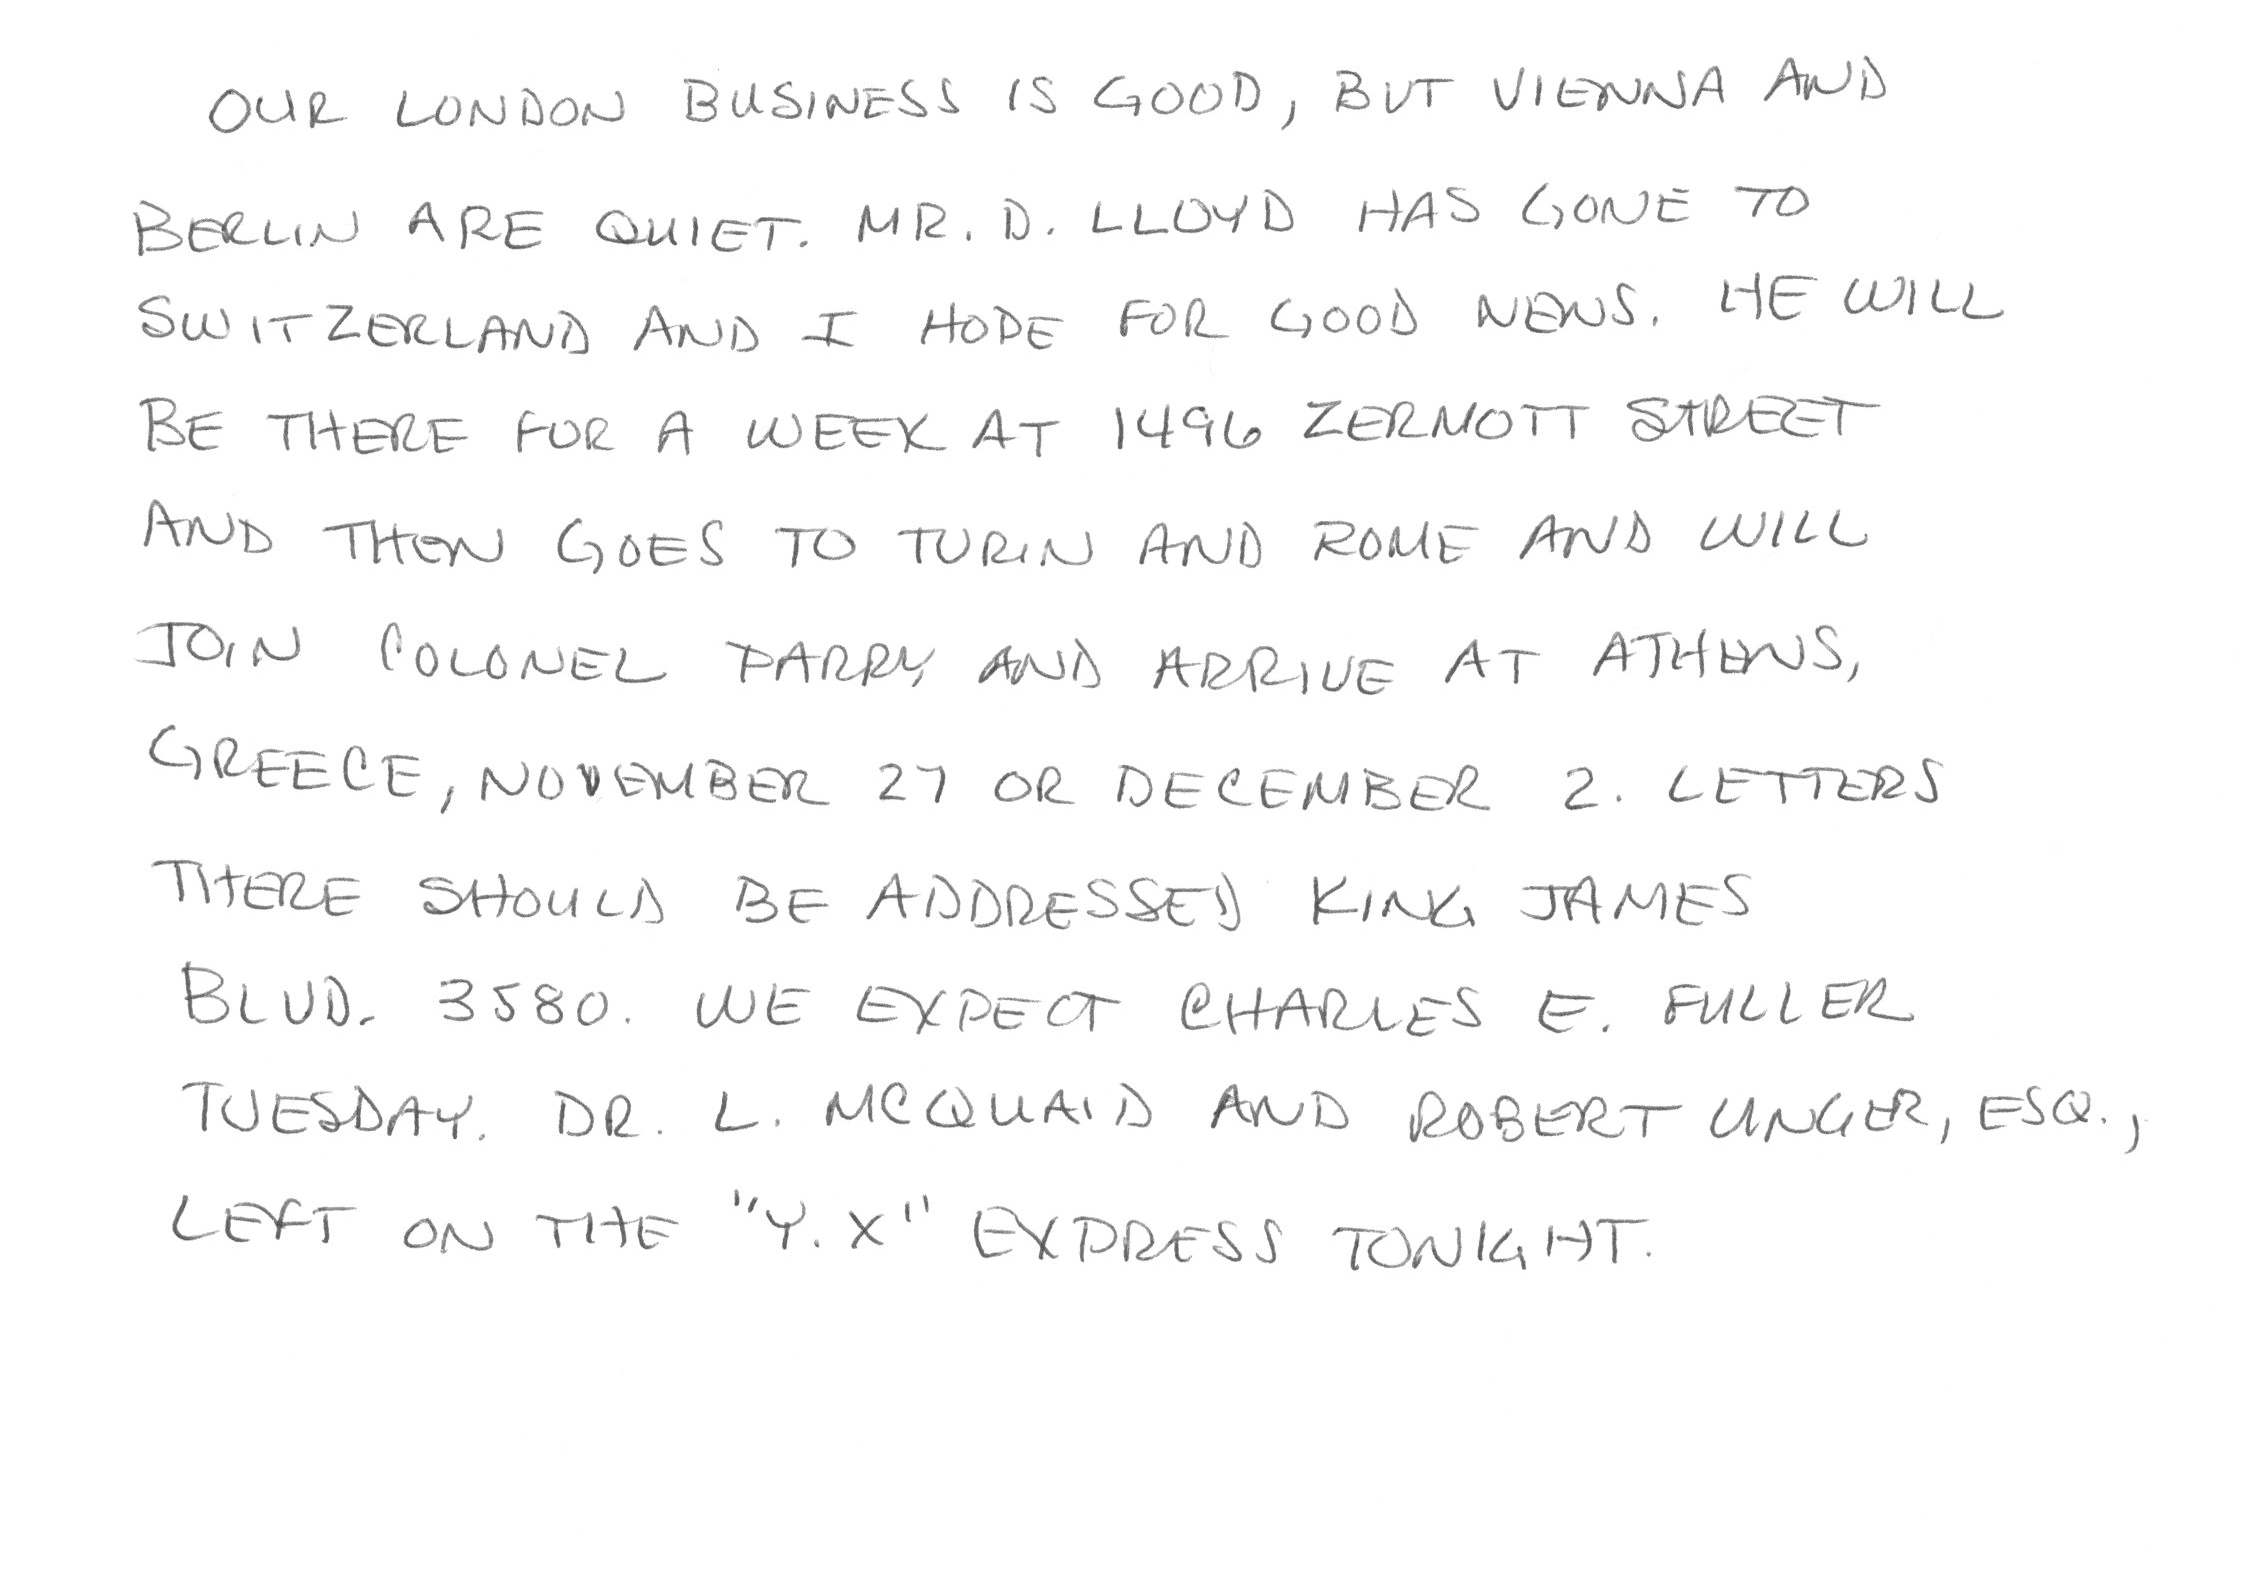 OUR LONDON BUSINESS IS GOOD, BUT VIENNA AND
BERLIN ARE QUIET. MR. D. LLOYD HAS GONE TO
SWITZERLAND AND I HOPE FOR GOOD NEWS. HE WILL
BE THERE FOR A WEEK AT 1496 ZERMOTT STREET
AND THEN GOES TO TURIN AND ROME AND WILL
JOIN COLONEL PARRY AND ARRIVE AT ATHENS,
GREECE, NOVEMBER 27 OR DECEMBER 2. LETTERS
THERE SHOULD BE ADDRESSED KING JAMES
BLVD. 3580. WE EXPECT CHARLES E. FULLER
TUESDAY. DR. L. MCQUAID AND ROBERT UNGER, ESQ.,
LEFT ON THE "Y. X" EXPRESS TONIGHT.